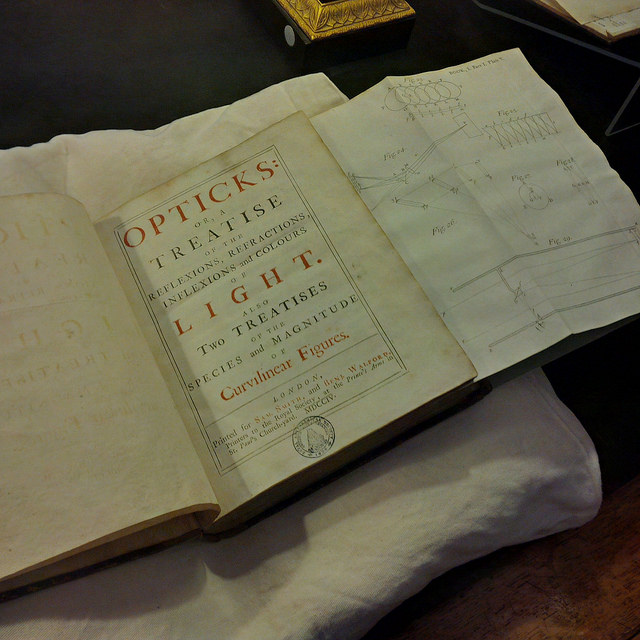 OPTICKS:
OR, A
TREATISE
OF THE
REFLEXIONS, REFRACTIONS,
INFLEXIONS and COLOURS
OF
LIGHT.
ALSO
Two TREATISES
OF THE
SPECIES and MAGNITUDE
OF
Curvilinear Figures.
LONDON,
Printed for SAM. SMITH, and BENJ. WALFORD,
Printers to the Royal Society, at the Prince's Arms in
St. Paul's Church-yard. MDCCIV.
Fig. 20.